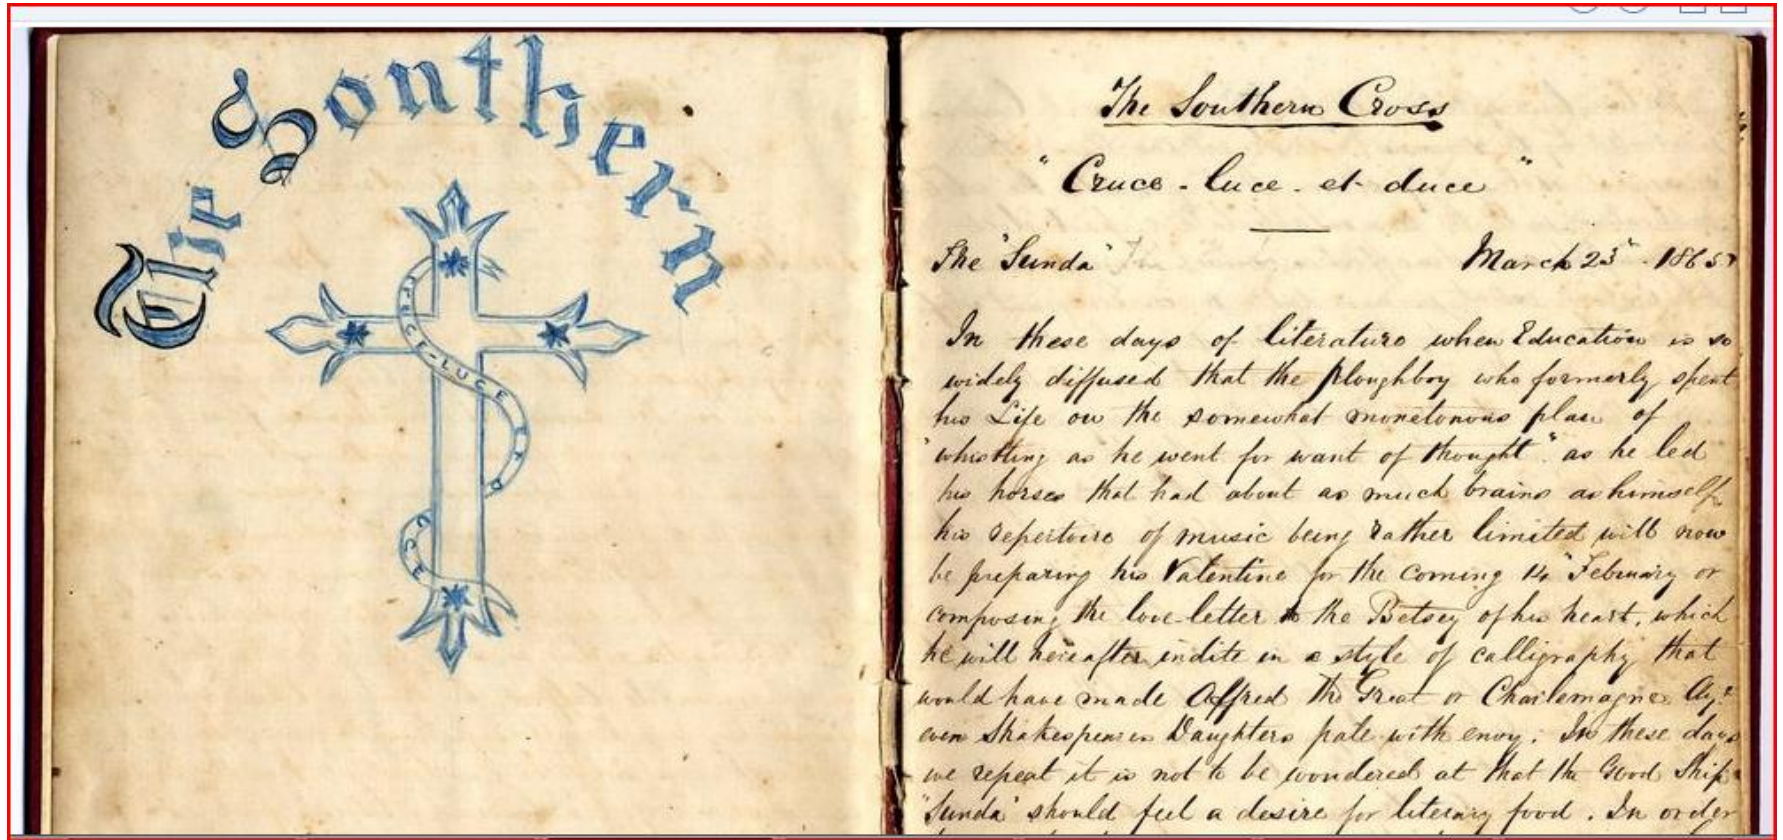 The Southern
CRUCE-LUCE ET D
UCE
The Southern Cross
"Cruce - luce - et - duce"
The "Sunda" March 23rd 1865
In these days of literature when Education is so
widely diffused that the ploughboy who formerly spent
his Life on the somewhat monotonous plan of
"whistling as he went for want of thought" as he led
his horses that had about as much brains as himself
his repertoire of music being rather limited will now
be preparing his Valentine for the coming 14" February or
composing the love-letter to the Betsey of his heart, which
he will hereafter indite in a style of calligraphy that
would have made Alfred the Great or Charlemagne Ay?
even Shakespeares Daughters pale with envy. In these days
we repeat it is not to be wondered at that the Good Ship
"Sunda" should feel a desire for literary food. In order